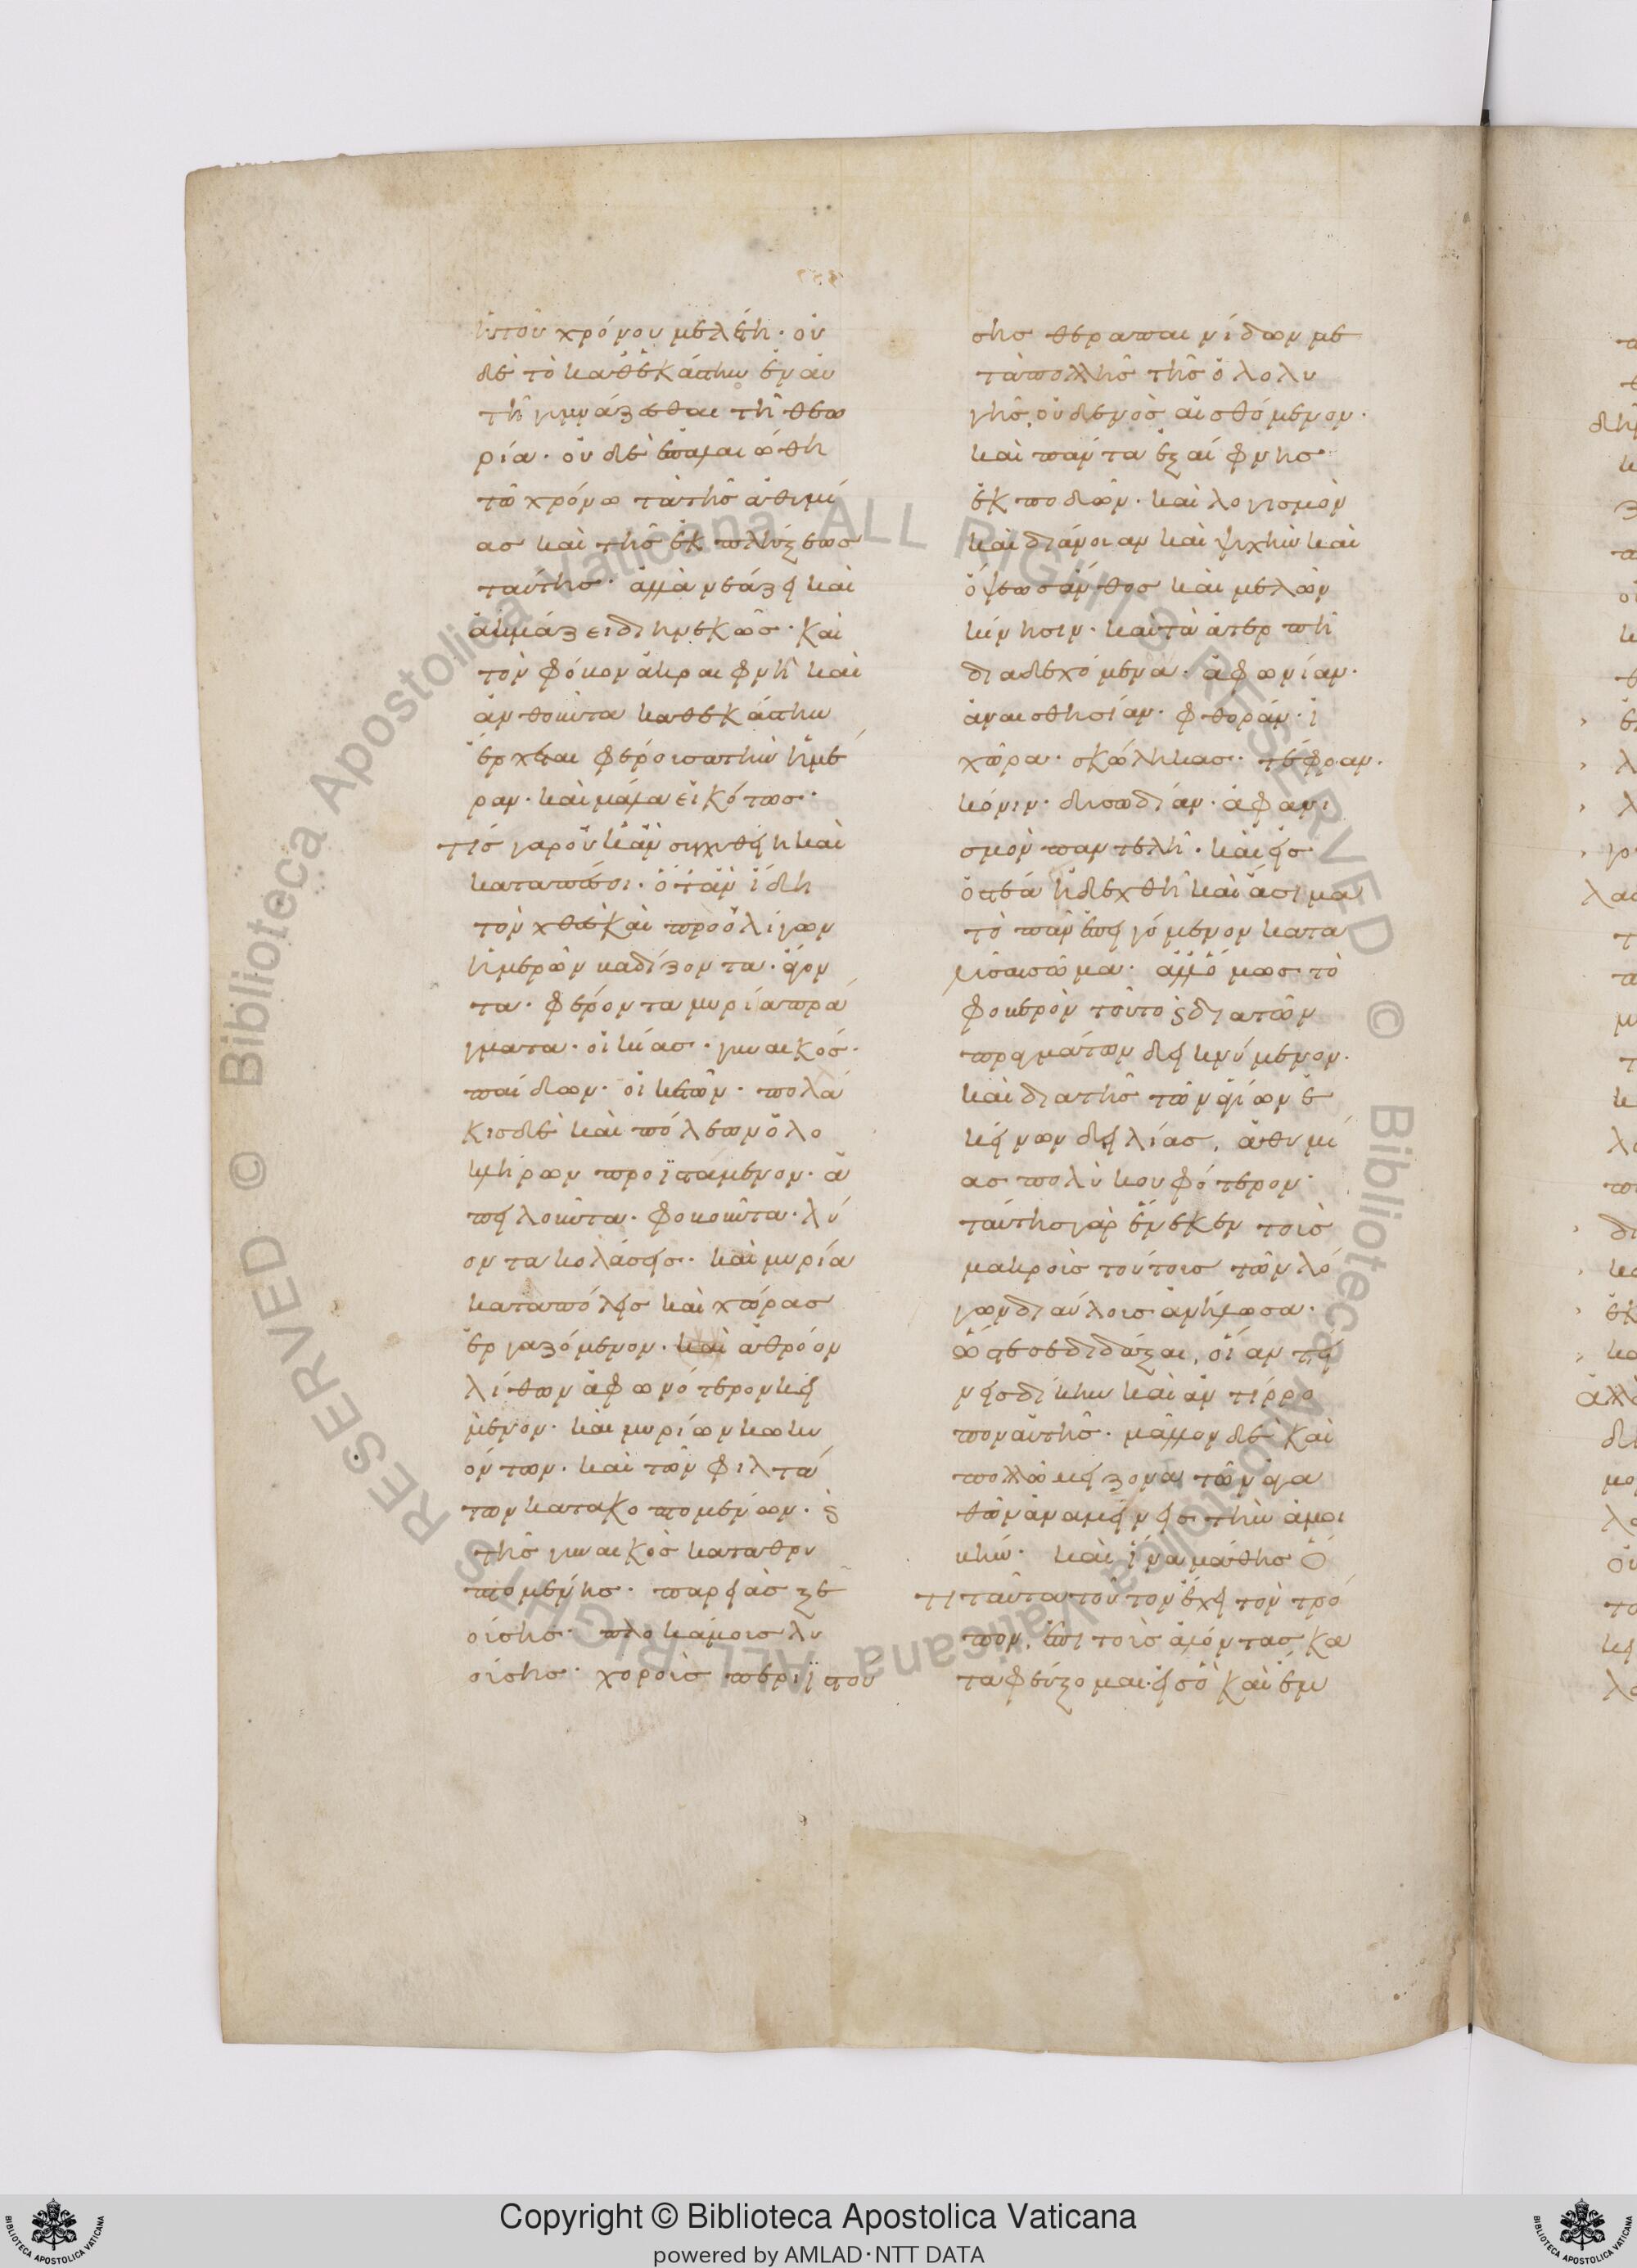 ἡ τοῦ χρόνου μελέτη· οὐ
δὲ τὸ καθ' ἑκάστην ἐν αὐ
τῇ γυμνάζεσθαι τῇ θεω
ρία· οὐδὲ ἐπαλαιώθη
τῷ χρόνω τὰ τῆς ἀθυμί
ας καὶ τῆς ἐκπλήξεως
ταύτης· ἀλλὰ νεάζει καὶ
ἀκμάζει διηνεκῶς· καὶ
τὸν φόβον ἀκραιφνῆ καὶ
ἀνθοῦντα καθ' ἑκάστην
ἔρχεται φέροισα τὴν ἡμέ
ραν· καὶ μάλα εἰκότως·
τίς γὰρ οὐκ ἂν συγχυθείη καὶ
καταπέσοι· ὅταν ἴδη
τὸν χθὲς καὶ πρὸ ὀλίγων
ἡμερῶν βαδίζοντα· ἄγον
τα· φέροντα μυρία πρά
γματα· οἰκίας· γυναικός·
παίδων· οἰκετῶν· πολλά
κις δὲ καὶ πόλεων ὁλο
κλήρων προϊστάμενον· ἀ
πειλοῦντα· φοβοῦντα· λύ
οντα κολάσεις· καὶ μυρία
κατὰ πόλεις καὶ χώρας
ἐργαζόμενον· καὶ ἀθρόον
λίθων ἀφωνότερον κεί
μενον· καὶ μυρίων κωκυ
όντων· καὶ τῶν φιλτά
των κατακοπτομένων· καὶ
τῆς γυναικὸς καταθρυ
πτομένης· παρειὰς ξε
οίσης· πλοκάμοις λυ
οίσης· χοροῖς περιϊστου
σης θεραπαινίδων με
τὰ πολλῆς τῆς ὀλολυ
γῆς, οὐδενὸς αἰσθόμενον·
καὶ πάντα ἐξαίφνης
ἐκποδῶν· καὶ λογισμὸν
καὶ διάνοιαν καὶ ψυχὴν καὶ
ὄψεως ἄνθος καὶ μελῶν
κίνησιν· καὶ τὰ ἀτερπῆ
διαδεχόμενα· ἀφωνίαν·
ἀναισθησίαν· φθοράν· ἰ
χῶρα· σκώληκας· τέφραν·
κόνιν· δυσωδίαν· ἀφανι
σμὸν παντελῆ· καὶ εἰς
ὀστέα ἠδεχθῆ καὶ ἄσιμα
τὸ πᾶν ἐπειγόμενον κατα
λῦσαι σῶμα· ἀλλ' ὅμως τὸ
φοβερὸν τοῦτο καὶ διὰ τῶν
πραγμάτων δεικνύμενον·
καὶ διὰ τῆς τῶν ἁγίων ἐ
κείνων δειλίας, ἀθυμί
ας πολὺ κουφότερον·
ταύτης γὰρ ἕνεκεν τοῖς
μακροῖς τούτοις τῶν λό
γων διαύλοις ἀνήλωσα·
ὥστέ σε διδάξαι, οἵαν τεί
νεις δίκην καὶ ἀντίρρο
πον αὐτῆς· μᾶλλον δὲ καὶ
πολλῷ μείζονα τῶν ἀγα
θῶν ἀναμένεις τὴν ἀμοι
βήν· καὶ ἵνα μάθης ὅ
τι ταῦτα τοῦτον ἔχει τὸν τρό
πον, ἐπὶ τοὺς ἁλόντας κα
ταφεύξομαι· εἰς ὃ καὶ ἔμ